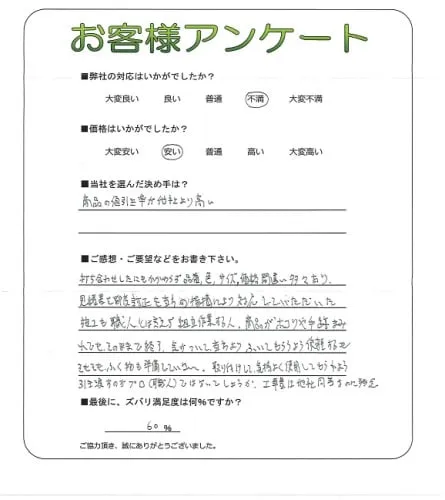 お客様アンケート
■弊社の対応はいかがでしたか？
大変良い 良い 普通 不満 大変不満
■価格はいかがでしたか？
大変安い 安い 普通 高い 大変高い
■当社を選んだ決め手は？
商品の値引き率が他社より高い
■ご感想・ご要望などをお書き下さい。
打ち合わせしたにもかかわらず品番、色、サイズ、価格間違い多々あり、
見積書を都度訂正を当方の指摘により対応していただいた
施工も職人とは言えず組立作業する人。商品がホコリや手跡まみ
れでも、そのままで終了。気がついて当方より、ふいてもらうよう依頼
ふく物も準備していない。取り付けして気持よく使用してもらうよう
引き渡すのがプロ（職人）ではないでしょうか、工事費は他社同等なのに残念
■最後に、ズバリ満足度は何%ですか？
60 %
ご協力頂き、誠にありがとうございました。